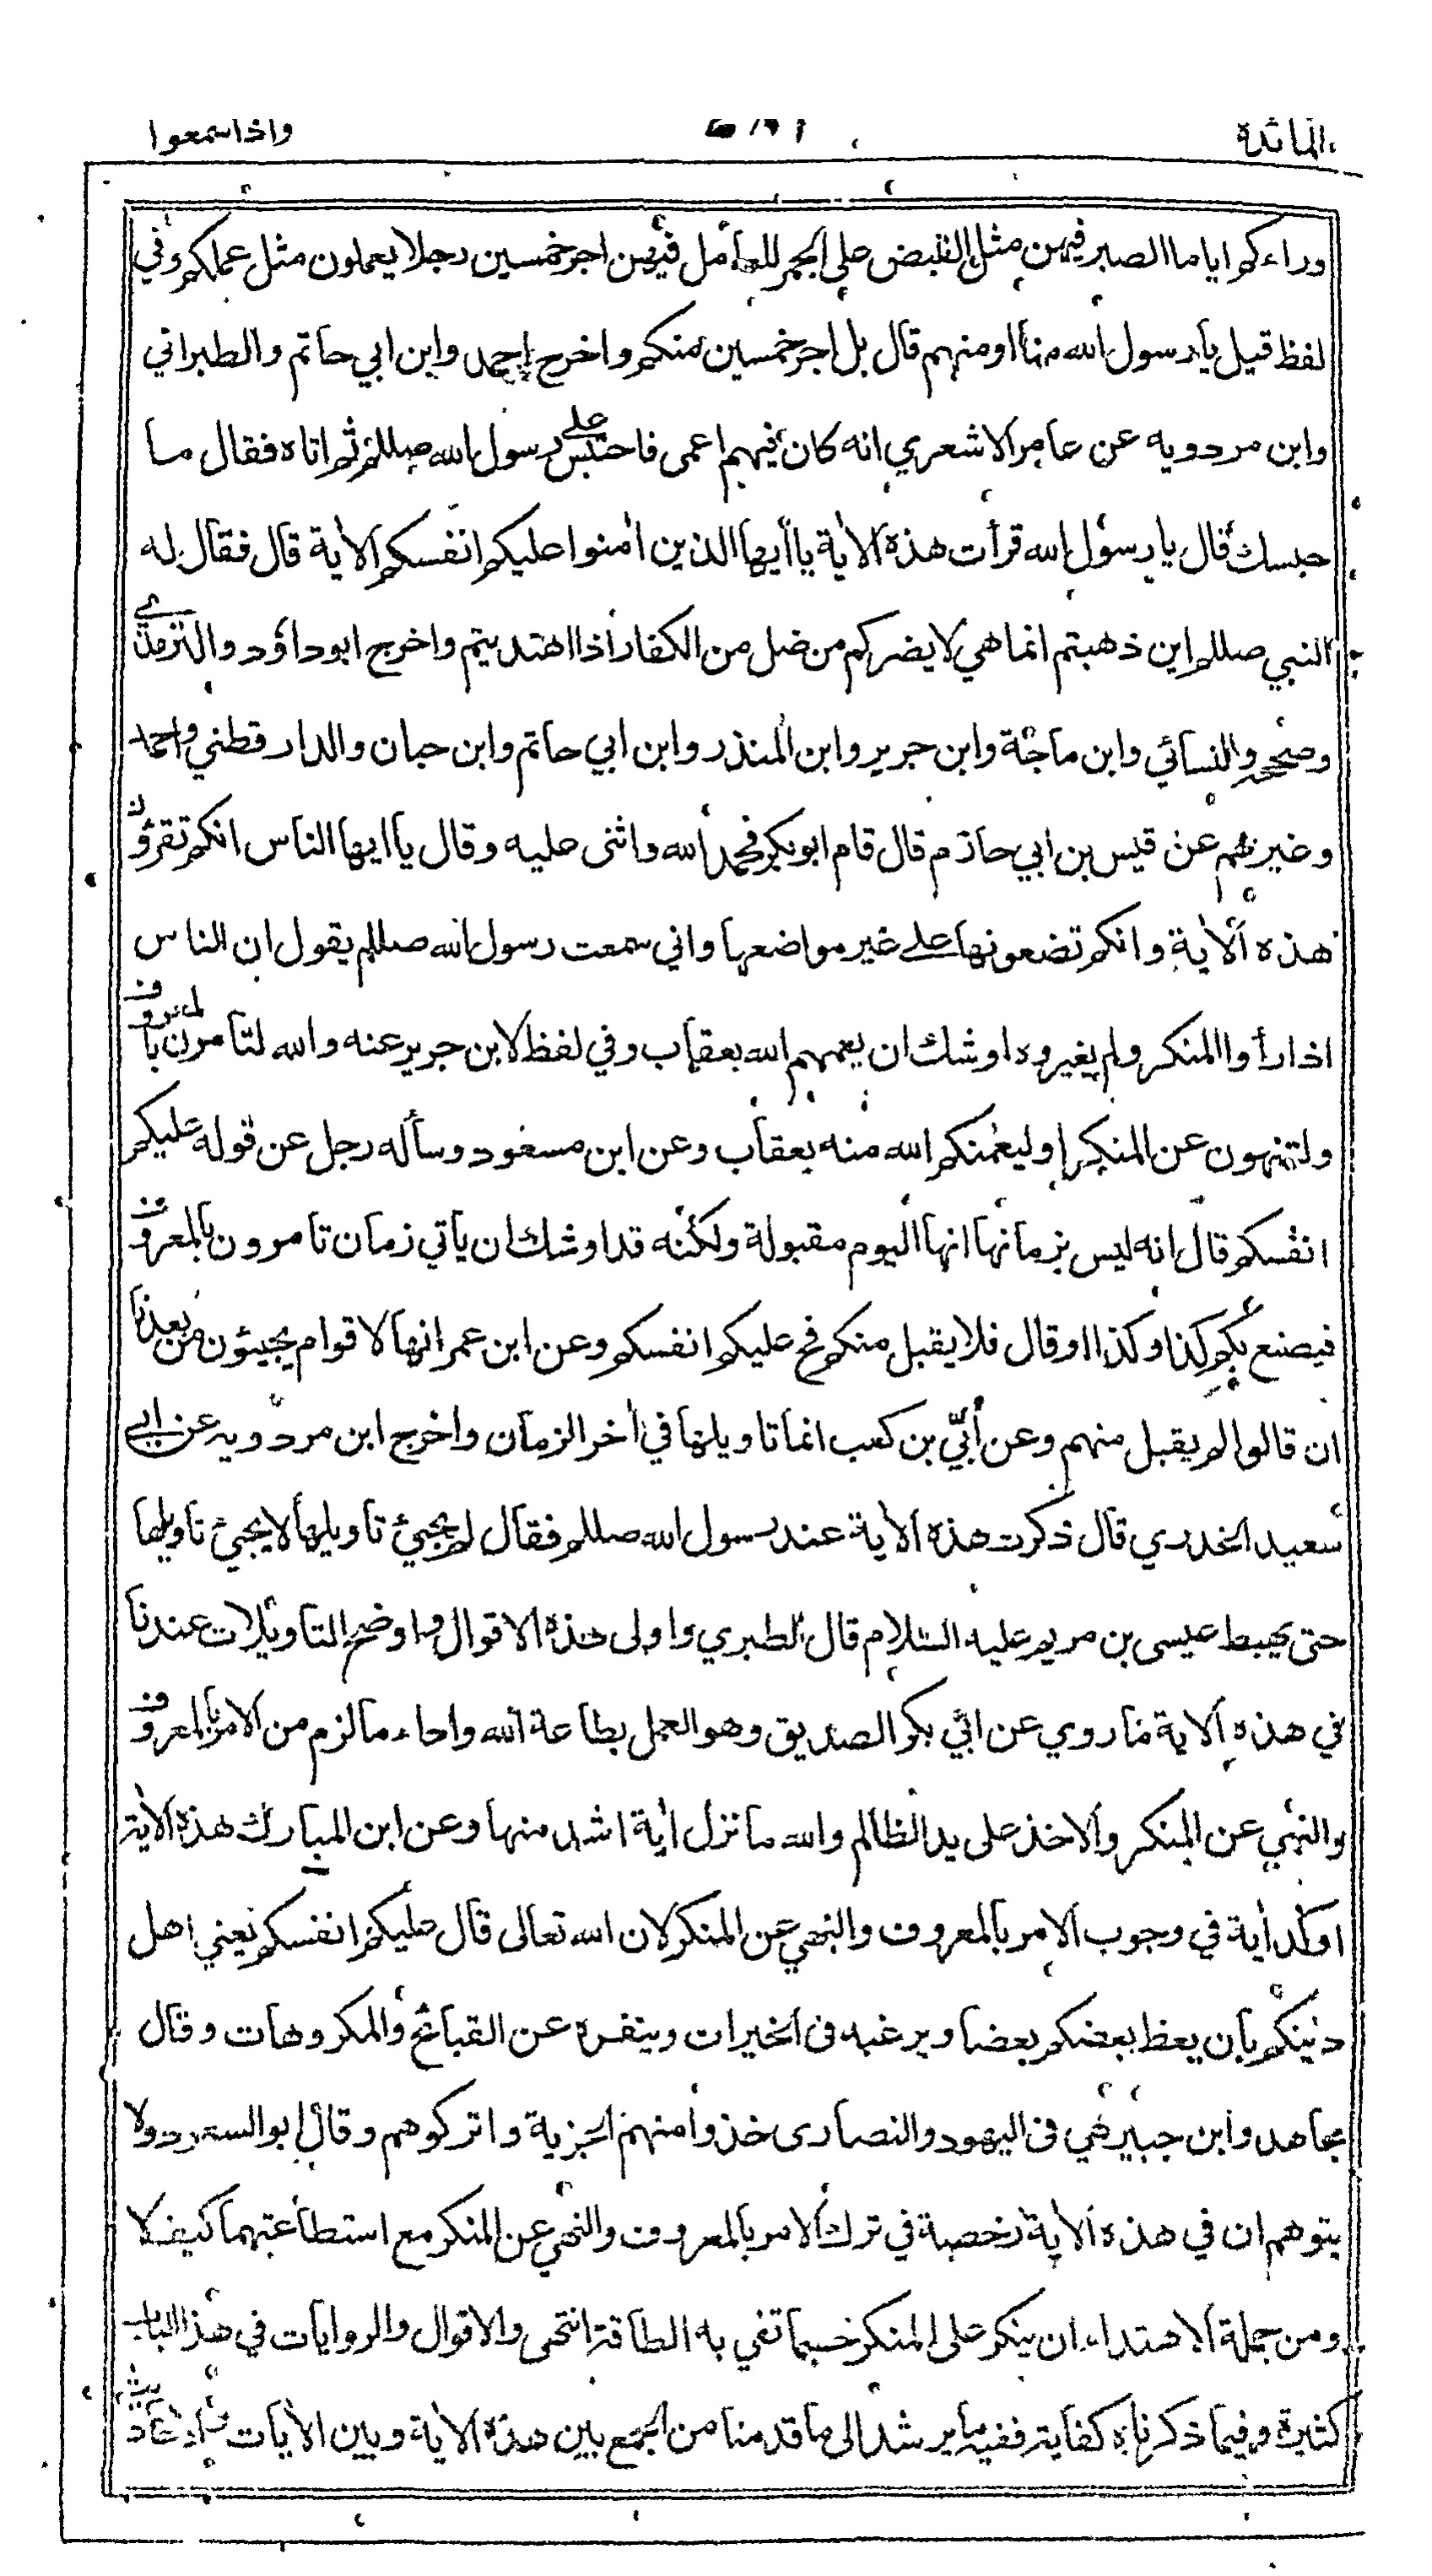 المائدة
واذا سمعوا
وراءكم اياما الصبر فيهن مثل القبض على الجمر للعامل فيهن اجر خمسين رجلا يعملون مثل عملكم وفي
لفظ قيل يا رسول الله منا او منهم قال بل اجر خمسين منكم واخرج احمد وابن ابي حاتم والطبراني
وابن مردويه عن عامر الاشعري انه كان فيهم اعمى فاحتبس على رسول الله صللم ثم اتاه فقال ما
حبسك قال يا رسول الله قرأت هذه الاية يا أيها الذين امنوا عليكم انفسكم الاية قال فقال له
النبي صللم اين ذهبتم انما هي لا يضركم من ضل من الكفار اذا اهتديتم واخرج ابو داؤد والترمذي
وصححه والنسائي وابن ماجة وابن جرير وابن المنذر وابن ابي حاتم وابن حبان والدارقطني واحمد
وغيرهم عن قيس بن ابي حازم قال قام ابو بكر فحمد الله واثنى عليه وقال يا ايها الناس انكم تقرؤن
هذه الاية وانكم تضعونها على غير مواضعها واني سمعت رسول الله صللم يقول ان الناس
اذا رأوا المنكر ولم يغيروه اوشك ان يعمهم الله بعقاب وفي لفظ لابن جرير عنه والله لتامرن بالمعروف
ولتنهون عن المنكر او ليعمنكم الله منه بعقاب وعن ابن مسعود وسأله رجل عن قوله عليكم
انفسكم قال انه ليس بزمانها انها اليوم مقبولة ولكنه قد اوشك ان يأتي زمان تامرون بالمعروف
فيصنع بكم كذا وكذا او قال فلا يقبل منكم فح عليكم انفسكم وعن ابن عمر انها لاقوام يجيئون من بعدنا
ان قالوا لم يقبل منهم وعن أبيّ بن كعب انما تاويلها في أخر الزمان واخرج ابن مردويه عن ابي
سعيد الخدري قال ذكرت هذه الاية عند رسول الله صللم فقال لم يجيئ تاويلها لا يجيئ تاويلها
حتى يهبط عيسى بن مريم عليه السلام قال الطبري واولى هذه الاقوال واوضح التاويلات عندنا
في هذه الاية ما روي عن ابي بكر الصديق وهو العمل بطاعة الله واداء ما لزم من الامر بالمعروف
والنهي عن المنكر والاخذ على يد الظالم والله ما نزل أية اشد منها وعن ابن المبارك هذه الاية
اوكد أية في وجوب الامر بالمعروف والنهي عن المنكر لان الله تعالى قال عليكم انفسكم يعني اهل
دينكم بان يعظ بعضكم بعضا ويرغبه في الخيرات وينفره عن القبائح والمكروهات وقال
مجاهد وابن جبير هي في اليهود والنصارى خذوا منهم الجزية واتركوهم وقال ابو السعود ولا
يتوهم ان في هذه الاية رخصة في ترك الامر بالمعروف والنهي عن المنكر مع استطاعتهما كيف لا
ومن جملة الاهتداء ان ينكر على المنكر حسبما تفي به الطاقة انتهى والاقوال والروايات في هذا الباب
كثيرة وفيما ذكرناه كفاية ففيه ما يرشد الى ما قدمنا من الجمع بين هذه الاية وبين الايات